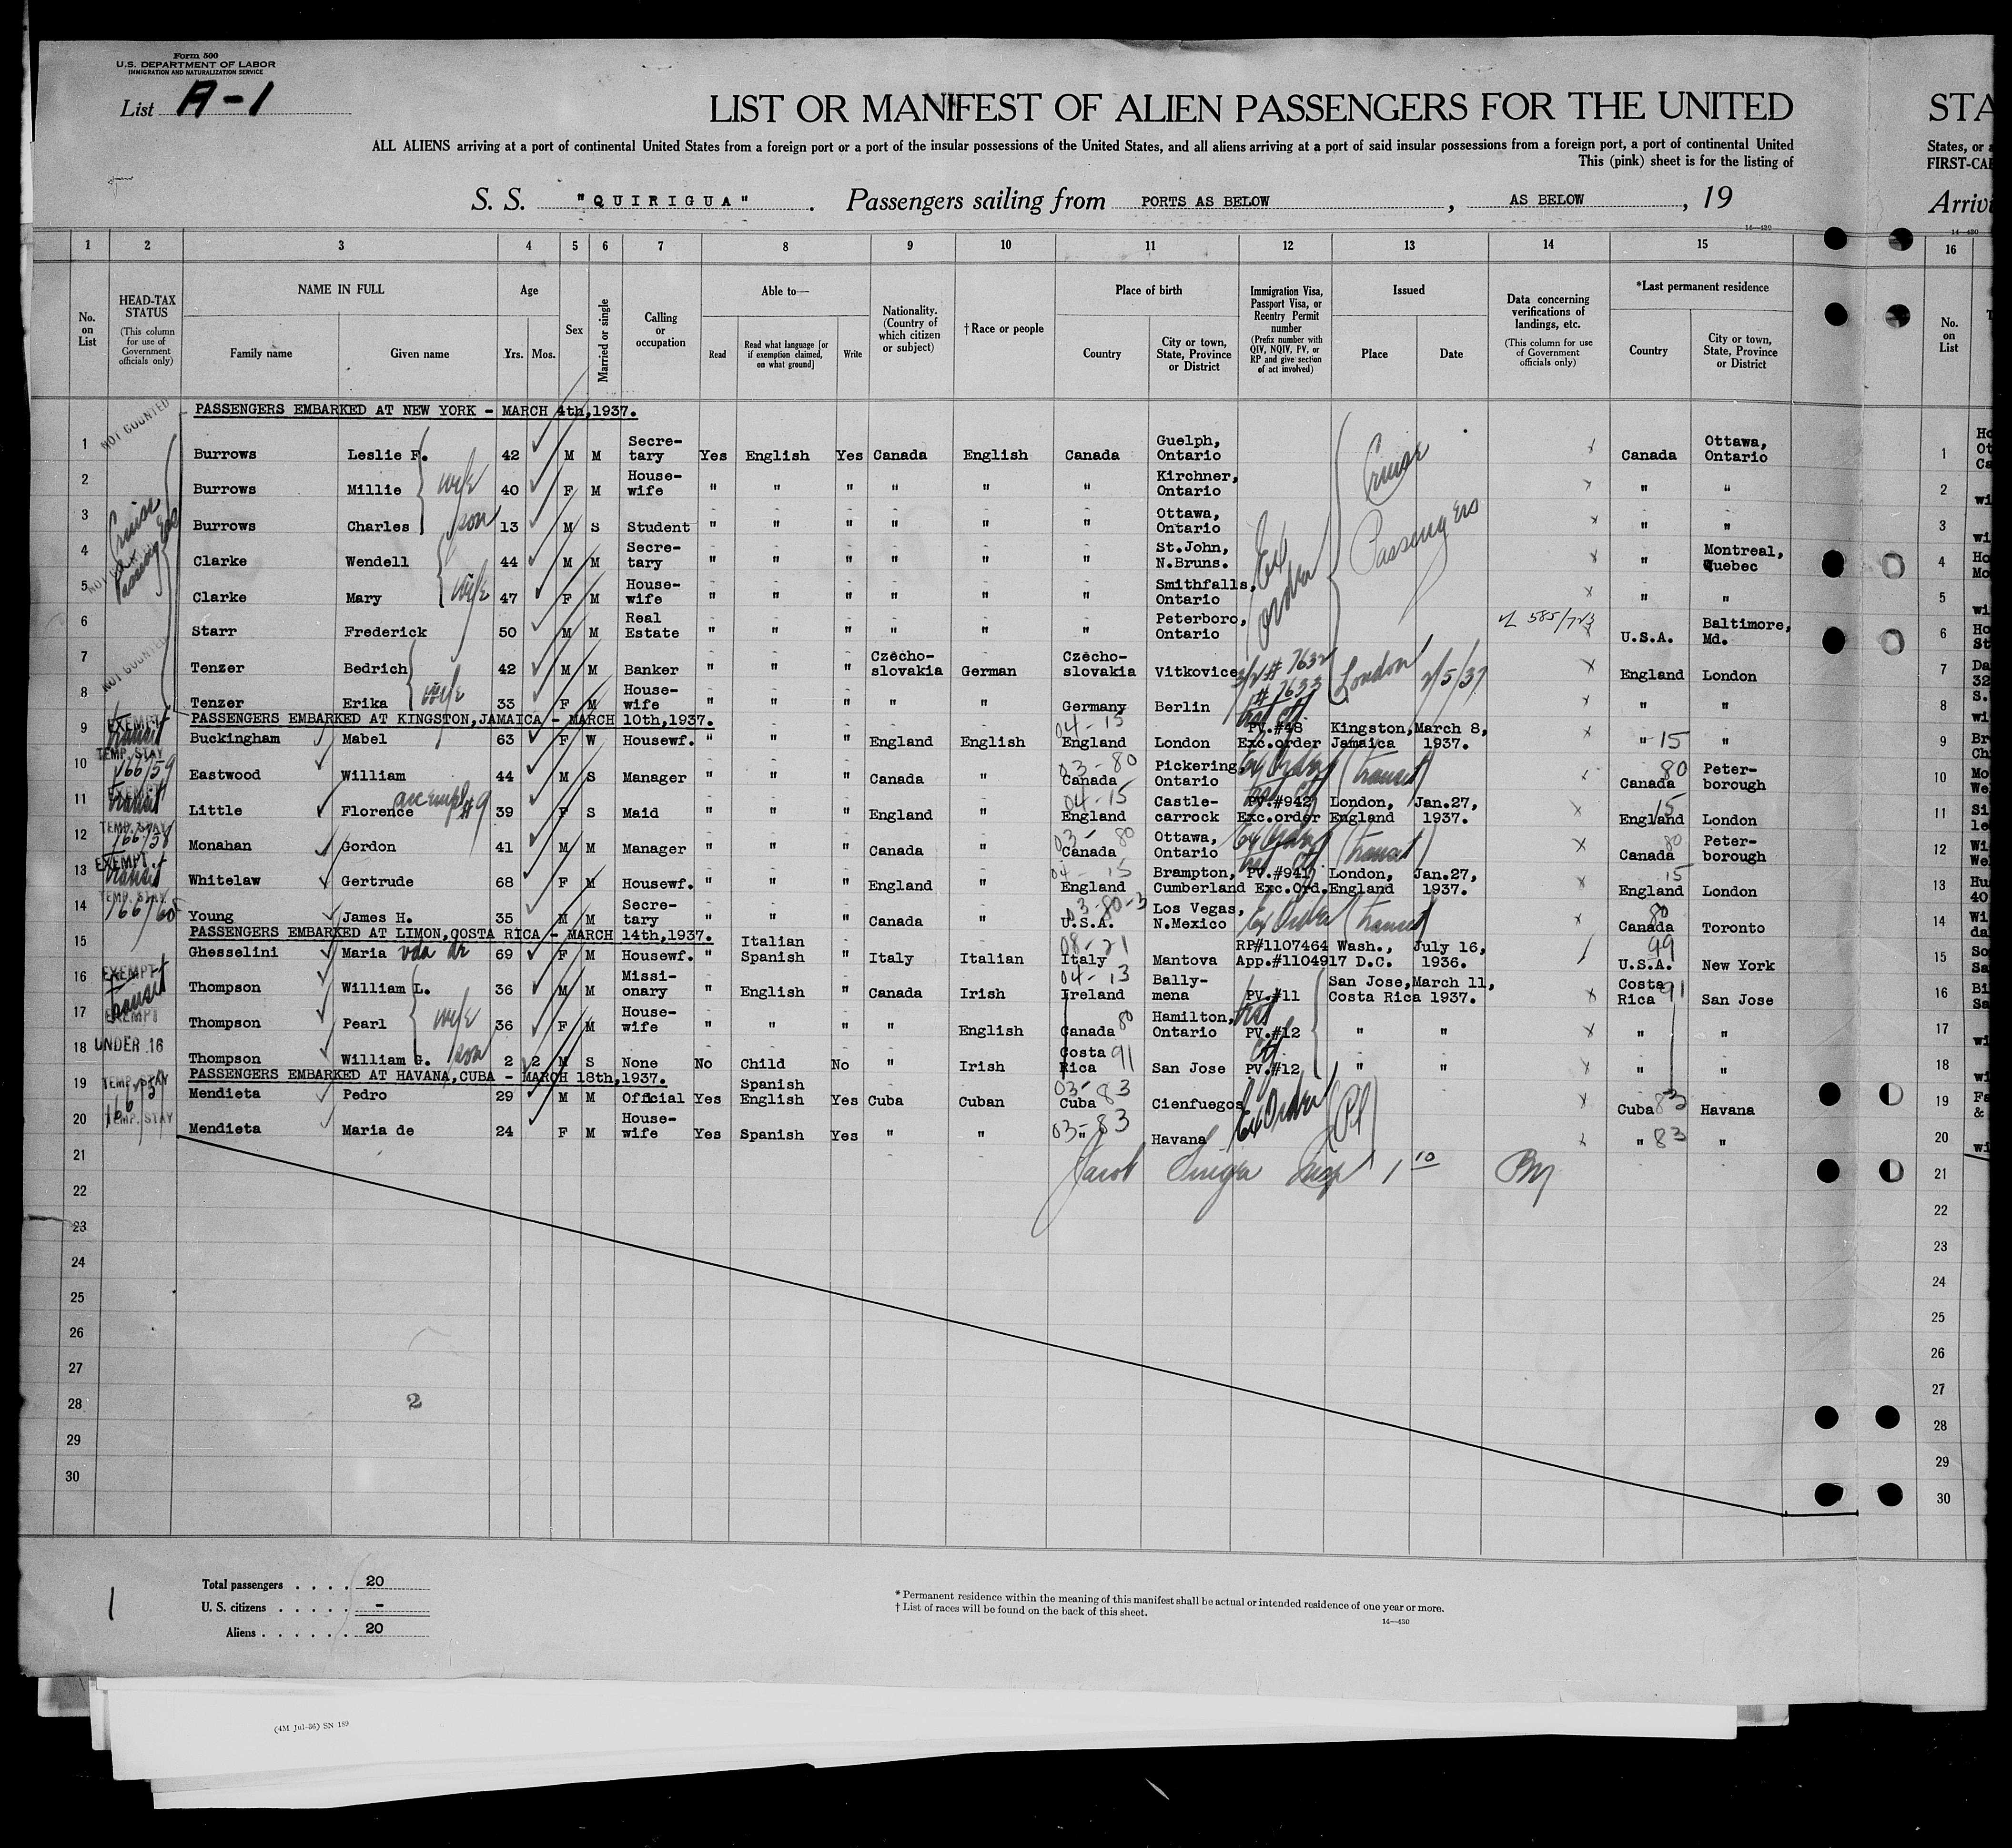 Form 500
U.S. DEPARTMENT OF LABOR
IMMIGRATION AND NATURALIZATION SERVICE
List A-1
LIST OR MANIFEST OF ALIEN PASSENGERS FOR THE UNITED STA
ALL ALIENS arriving at a port of continental United States from a foreign port or a port of the insular possessions of the United States, and all aliens arriving at a port of said insular possessions from a foreign port, a port of continental United States, or
This (pink) sheet is for the listing of FIRST-CA
S. S. "QUIRIGUA". Passengers sailing from PORTS AS BELOW, AS BELOW, 19 Arrivi
14—430 14—430
1 2 3 4 5 6 7 8 9 10 11 12 13 14 15 16
No. on List
HEAD-TAX STATUS
(This column for use of Government officials only)
NAME IN FULL
Family name Given name
Age
Yrs. Mos.
Sex
Married or single
Calling or occupation
Able to—
Read
Read what language [or if exemption claimed, on what ground]
Write
Nationality. (Country of which citizen or subject)
†Race or people
Place of birth
Country
City or town, State, Province or District
Immigration Visa, Passport Visa, or Reentry Permit number
(Prefix number with QIV, NQIV, PV, or RP and give section of act involved)
Issued
Place Date
Data concerning verifications of landings, etc.
(This column for use of Government officials only)
*Last permanent residence
Country
City or town, State, Province or District
No. on List
PASSENGERS EMBARKED AT NEW YORK - MARCH 4th,1937.
NOT COUNTED
Cruise Passengers
Cruise Passengers
Ex order
1 Burrows Leslie F. 42 M M Secretary Yes English Yes Canada English Canada Guelph, Ontario Canada Ottawa, Ontario 1
2 Burrows Millie wife 40 F M House-wife " " " " " " Kirchner, Ontario " " 2
3 Burrows Charles son 13 M S Student " " " " " " Ottawa, Ontario " " 3
4 Clarke Wendell 44 M M Secre-tary " " " " " " St.John, N.Bruns. " Montreal, Quebec 4
5 Clarke Mary wife 47 F M House-wife " " " " " " Smithfalls, Ontario " " 5
6 Starr Frederick 50 M M Real Estate " " " " " " Peterboro, Ontario U.S.A. Baltimore, Md. 6
NOT COUNTED
7 Tenzer Bedrich 42 M M Banker " " " Czecho-slovakia German Czecho-slovakia Vitkovice # 7632 London 2/5/37 England London 7
8 Tenzer Erika wife 33 F M House-wife " " " " " Germany Berlin # 7633 " " 8
PASSENGERS EMBARKED AT KINGSTON,JAMAICA - MARCH 10th,1937.
9 EXEMPT Transit Buckingham Mabel 63 F W Housewf. " " " England English 04-15 England London PV.#48 Exc.order Kingston, Jamaica March 8, 1937. " 15 " 9
10 TEMP. STAY 166/59 Eastwood William 44 M S Manager " " " Canada " 03-80 Canada Pickering, Ontario Ex Order (Transit) 80 Canada Peter-borough 10
11 EXEMPT Transit Little Florence 39 F S Maid " " " England " 04-15 England Castle-carrock PV.#942 Exc.order London, England Jan.27, 1937. 15 England London 11
12 TEMP. STAY 166/58 Monahan Gordon 41 M M Manager " " " Canada " 03-80 Canada Ottawa, Ontario Ex Order (Transit) 80 Canada Peter-borough 12
13 EXEMPT Transit Whitelaw Gertrude 68 F M Housewf. " " " England " 04-15 England Brampton, Cumberland PV.#941 Exc.Ord. London, England Jan.27, 1937. 15 England London 13
14 TEMP. STAY 166/60 Young James H. 35 M M Secre-tary " " " Canada " 03-80-3 U.S.A. Los Vegas, N.Mexico Ex Order (Transit) 80 Canada Toronto 14
PASSENGERS EMBARKED AT LIMON,COSTA RICA - MARCH 14th,1937.
15 Ghesselini Maria vda de 69 F M Housewf. " Italian Spanish " Italy Italian 08-21 Italy Mantova RP#1107464 App.#1104917 Wash., D.C. July 16, 1936. 99 U.S.A. New York 15
16 EXEMPT Transit Thompson William L. 36 M M Missi-onary " English " Canada Irish 04-13 Ireland Bally-mena PV.#11 San Jose, Costa Rica March 11, 1937. Costa Rica 91 San Jose 16
17 EXEMPT Thompson Pearl wife 36 F M House-wife " " " " English Canada 80 Hamilton, Ontario PV.#12 " " " " 17
18 UNDER 16 Thompson William G. son 2 2 M S None No Child No " Irish Costa Rica 91 San Jose PV.#12 " " " " 18
PASSENGERS EMBARKED AT HAVANA,CUBA - MARCH 18th,1937.
19 TEMP. STAY Mendieta Pedro 29 M M Official Yes Spanish English Yes Cuba Cuban 03-83 Cuba Cienfuegos Ex Order Cuba 83 Havana 19
20 TEMP. STAY Mendieta Maria de 24 F M House-wife Yes Spanish Yes " " 03-83 " Havana " 83 " 20
21 Jacob 21
22 22
23 23
24 24
25 25
26 26
27 27
28 2 28
29 29
30 30
Total passengers . . . . 20
U. S. citizens . . . . . -
Aliens . . . . . . 20
1
* Permanent residence within the meaning of this manifest shall be actual or intended residence of one year or more.
† List of races will be found on the back of this sheet.
14—430
(4M Jul-36) SN 189